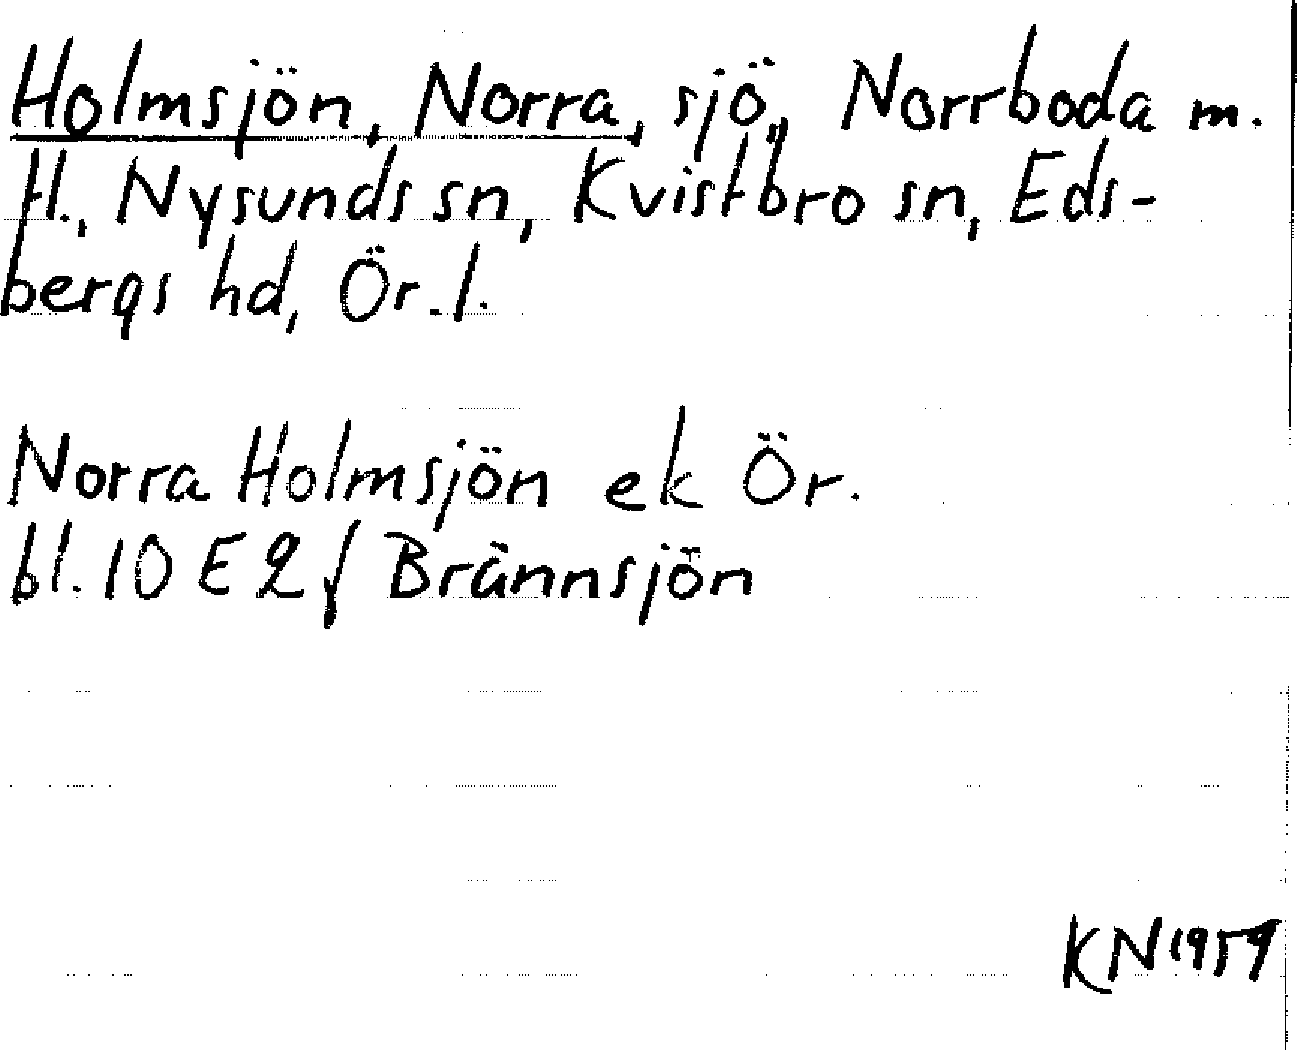 Holmsjön, Norra, sjö, Norrboda m.
fl., Nysunds sn, Kvistbro sn, Eds-
bergs hd, Ör. l.
Norra Holmsjön ek Ör.
bl. 10 E 2 f Brännsjön
KN 1959